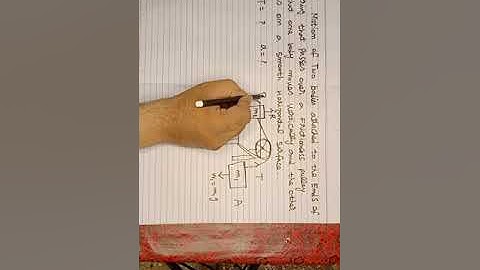 Motion of Two bodies attached to the Ends of
that passes over a Frictionless pulley
that one body moves vertically and the other
on a smooth Horizontal Surface
T = ? a = ?
R
m
T
m
A
= mg